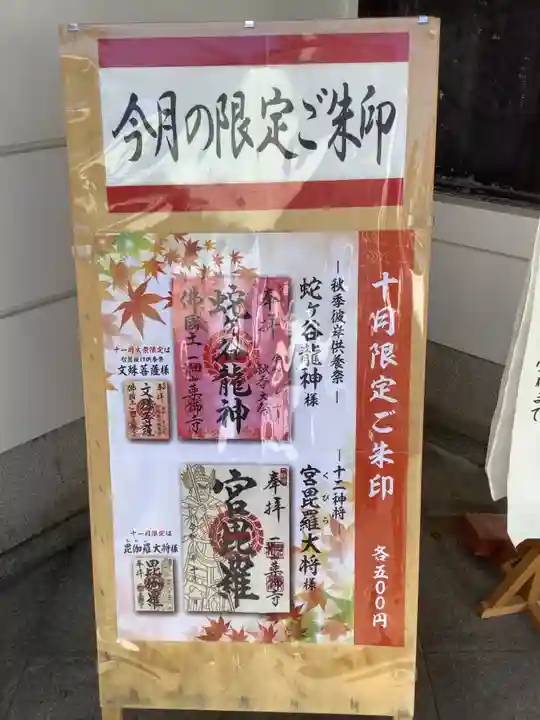 今月の限定ご朱印
十月限定ご朱印
各五00円
―秋季彼岸供養祭―
蛇ヶ谷龍神様
奉拝
蛇ヶ谷龍神
佛國土 一畑山薬師寺
文殊菩薩様
奉拝
文殊菩薩
―十二神将―
宮毘羅大将様
くびら
奉拝 一畑山薬師寺
宮毘羅
十一月限定は
毘伽羅大将様
奉拝
毘伽羅